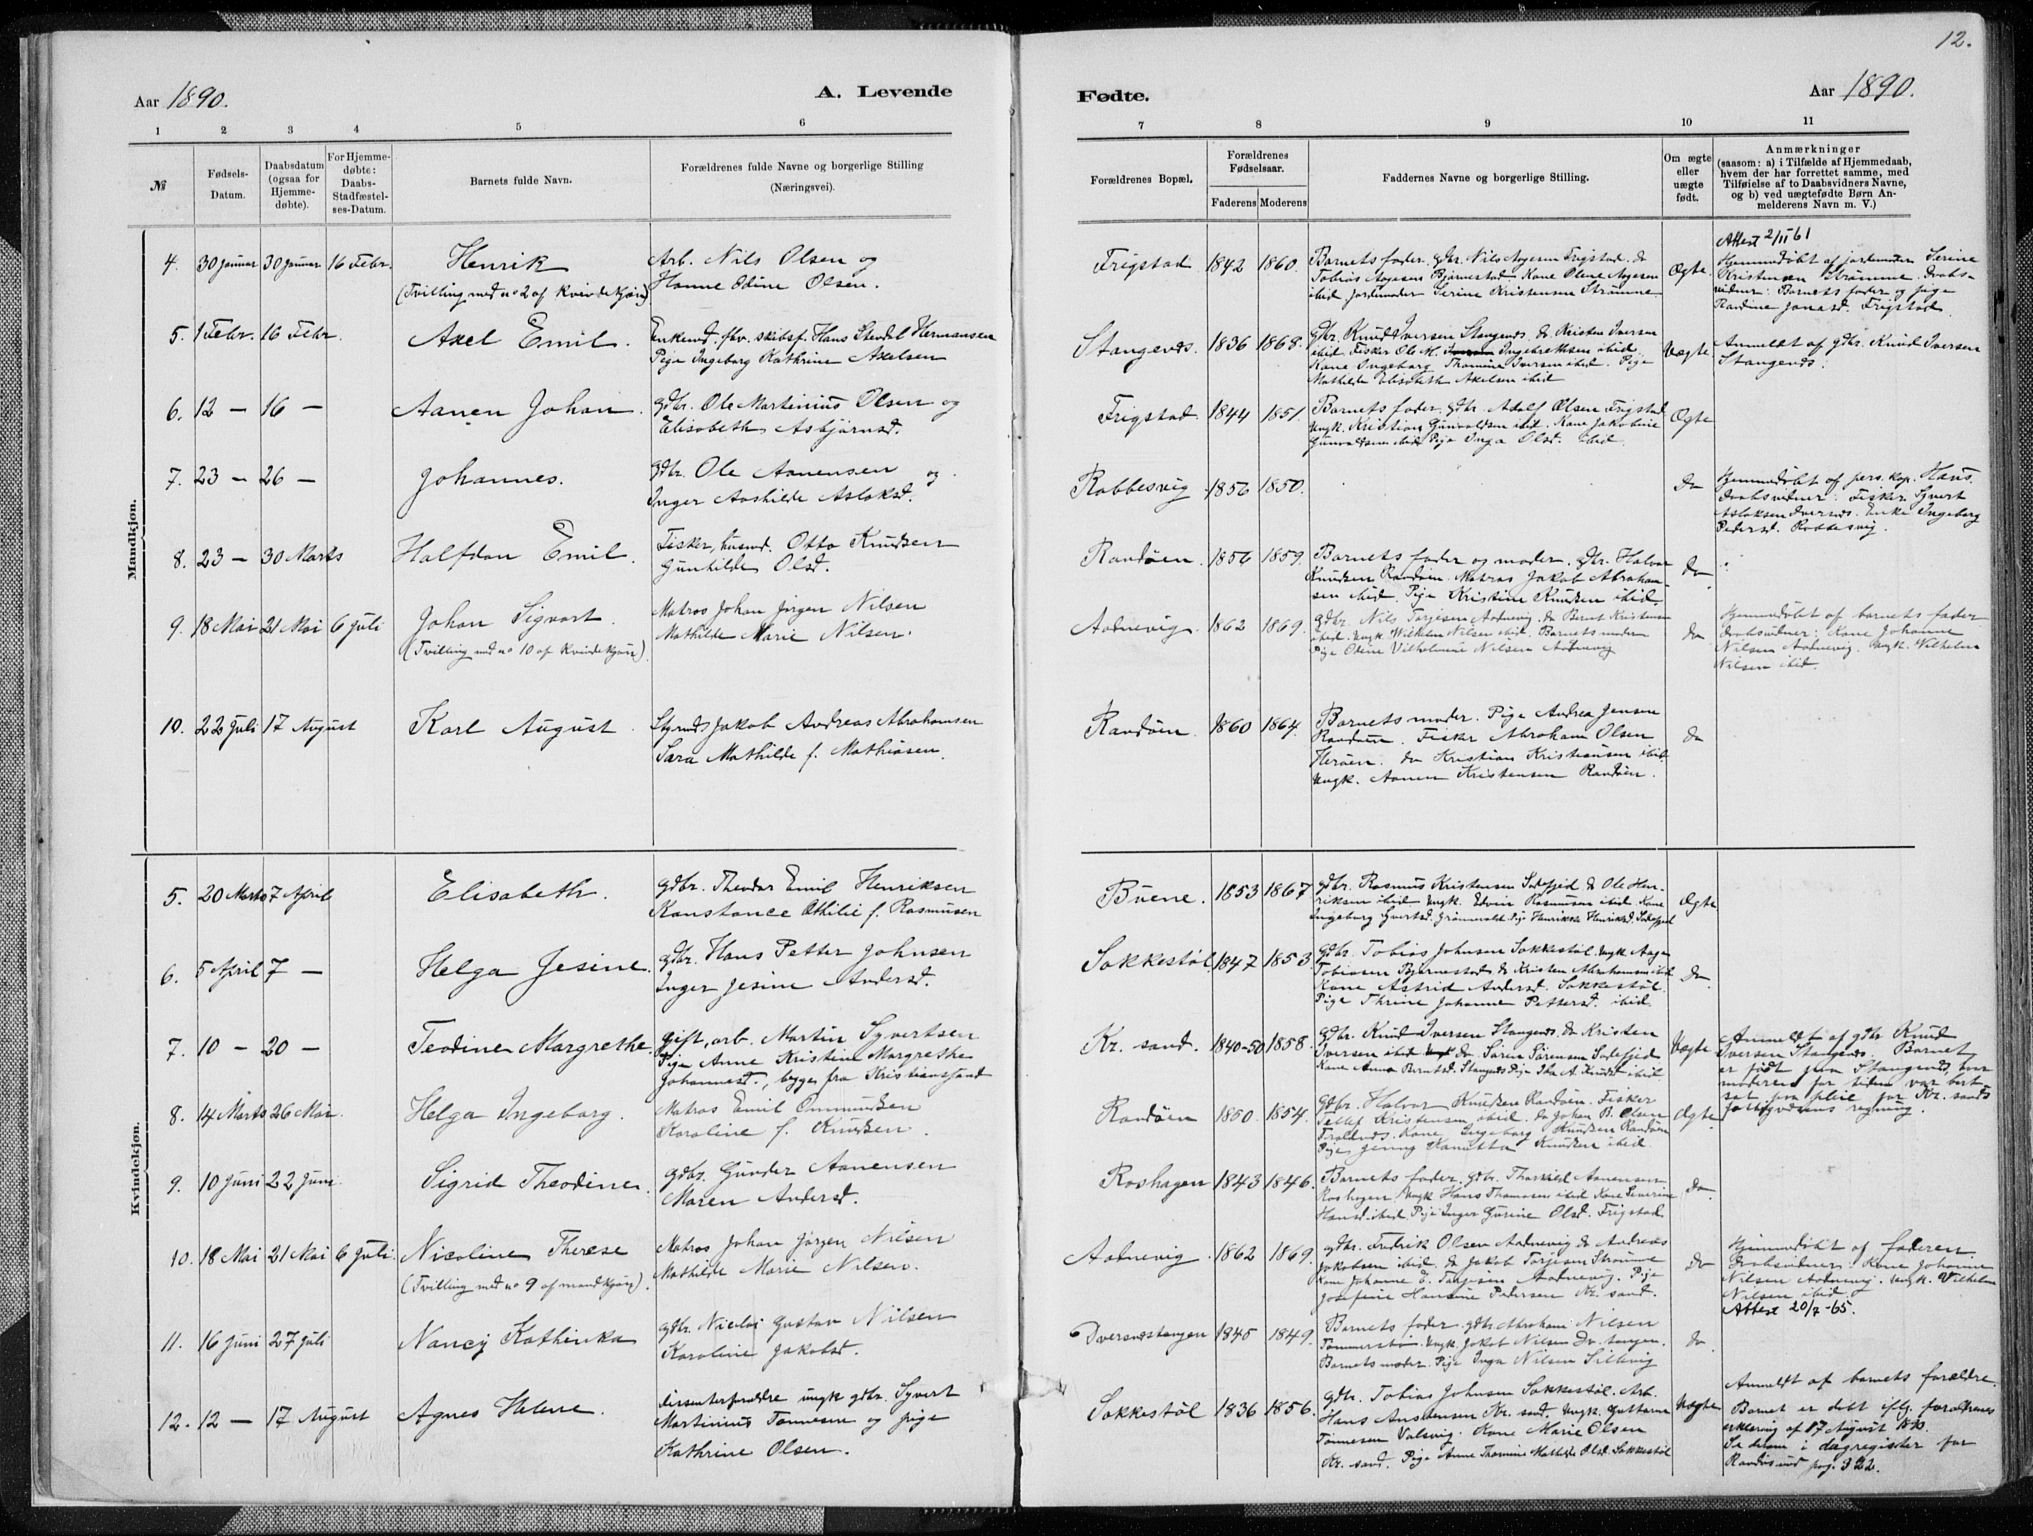 12.
Aar 1890.
A. Levende
1 2 3 4 5 6
№
Fødsels-
Datum.
Daabsdatum
(ogsaa for
Hjemme-
døbte).
For Hjemme-
døbte:
Daabs-
Stadfæstel-
ses-Datum.
Barnets fulde Navn.
Forældrenes fulde Navne og borgerlige Stilling
(Næringsvei).
Mandkjøn.
4. 30 Januar 30 Januar 16 Febr. Henrik
(Tvilling med no 2 af Kvindekjøn)
Arb. Nils Olsen og
Hanne Odine Olsen.
5. 1 Febr. 16 Febr. Axel Emil.
Enkemd. fhv. skibsf. Hans Stendel Hermansen
Pige Ingeborg Kathrine Axelsen
6. 12 — 16 — Aanen Johan.
gdbr. Ole Martinius Olsen og
Elisabeth Asbjørnsd.
7. 23 — 26 — Johannes.
gdbr. Ole Aanensen og
Inger Aashilde Aslaksd.
8. 23 — 30 Marts Halfdan Emil.
Fisker, husmd. Otto Knudsen
Gunhilde Olsd.
9. 18 Mai 21 Mai 6 Juli Johan Sigvart.
(Tvilling med no 10 af Kvindekjøn)
Matros Johan Jørgen Nilsen
Mathilde Marie Nilsen.
10. 22 Juli 17 August Karl August.
Styrmd. Jakob Andreas Abrahamsen
Sara Mathilde f. Mathiasen.
Kvindekjøn.
5. 20 Marts 7 April Elisabeth.
gdbr. Theodor Emil Henriksen
Konstance Othilie f. Rasmusen
6. 5 April 7 — Helga Jesine.
gdbr. Hans Petter Johnsen
Inger Jesine Andersd.
7. 10 — 20 — Teodine Margrethe
gift, arb. Martin Syvertsen
Pige Anne Kristine Margrethe
Johannesd., begge fra Kristianssand
8. 14 Marts 26 Mai. Helga Ingeborg.
Matros Emil Ommundsen
Karoline f. Knudsen.
9. 10 Juni 22 Juni. Sigrid Theodine.
gdbr. Gunder Aanensen
Maren Andersd.
10. 18 Mai 21 Mai 6 Juli. Nicoline Therese
(Tvilling med no 9 af mandkjøn).
Matros Johan Jørgen Nilsen
Mathilde Marie Nilsen.
11. 16 Juni 27 Juli Nancy Kathinka
gdbr. Nicolai Gustav Nilsen
Karoline Jakobsd.
12. 12 — 17 August Agnes Helene.
dissenterforældre ungk gdbr. Syvert
Martinius Tønnesen og pige
Kathrine Olsen.
Fødte.
Aar 1890.
7 8 9 10 11
Forældrenes Bopæl.
Forældrenes
Fødselsaar.
Faderens Moderens
Faddernes Navne og borgerlige Stilling.
Om ægte
eller
uægte
født.
Anmærkninger
(saasom: a) i Tilfælde af Hjemmedaab,
hvem der har forrettet samme, med
Tilføielse af to Daabsvidners Navne,
og b) ved uægtefødte Børn An-
melderens Navn m. V.)
Frigstad 1842 1860.
Barnets fader. gdbr. Nils Aagesen Frigstad. do
Tobias Aagesen Bjørnestad. Kone Olene Aagesen
ibid. jordemoder Serine Kristensen Strømme.
Ægte
Attest 2/II 61
Hjemmedøbt af jordemoder Serine
Kristensen Strømme. Daabs-
vidner: Barnets fader og pige
Randine Jonasd. Frigstad.
Stangenæs. 1836 1868.
gdbr. Knud Iversen Stangenæs. do Kristen Iversen
ibid. Fisker Ole M. Ingebrethsen ibid.
Kone Ingeborg Thomine Iversen ibid. Pige
Mathilde Elisabeth Axelsen ibid
Uægte
Anmeldt af gdbr. Knud Iversen
Stangenæs.
Frigstad. 1844 1851.
Barnets fader. gdbr. Adolf Olsen Frigstad
ungk. Kristian Gunvaldsen ibid. Kone Jakobine
Gunvaldsen ibid. Pige Inga Olsd. ibid.
Ægte
Rabbesvig 1856 1850.
Do
Hjemmedøbt af pers. kap. Hans.
Daabsvidner: Fisker Syvert
Aslaksen Dversnæs. Enke Ingeborg
Pedersd. Rabbesvig.
Randøen. 1856 1859.
Barnets fader og moder. gdbr. Halvor
Knudsen Randøen. Matros Jakob Abraham-
sen ibid. Pige Kristine Knudsen ibid.
do
Aadnevig. 1862 1869.
gdbr. Nils Torjesen Aadnevig. do Bernt Kristensen
ibid. ungk. Wilhelm Nilsen ibid. Barnets moder.
Pige Odine Vilhelmine Nilsen Aadnevig
do
Hjemmedøbt af barnets fader
Daabsvidner: Kone Johanne
Nilsen Aadnevig. ungk. Wilhelm
Nilsen ibid.
Randøen. 1860 1864.
Barnets moder. Pige Andrea Jensen
Randøen. Fisker Abraham Olsen
Herøen. do Kristian Kristensen ibid.
ungk. Aanen Kristensen Randøen.
do
Buene. 1853 1867
gdbr. Rasmus Kristensen Sodefjed do Ole Hen-
riksen ibid. ungk. Edvin Rasmusen ibid. Kone
Ingeborg
Ægte
Sokkestøl 1847 1853
gdbr. Tobias Johnsen Sokkestøl. ungk. Aage
Tobiasen Bjørnestad. do Kristen Abrahamsen ibid
Kone Astrid Andersd. Sokkestøl.
Pige Thrine Johanne Pettersd. ibid.
Do.
Kr. sand. 1840-50 1858.
gdbr. Knud Iversen Stangenæs. do Kristen
Iversen ibid. do Søren Sørensen Sodefjed
Kone Anna Berntsd. Stangenæs Pige Ida A. Knudsd. ibid
Uægte
Anmeldt af gdbr. Knud
Iversen Stangenæs. Barnet
er født paa Stangenæs, hvor
moderen for tiden var bort
sat paa pleie for Kr. sands
fattigvæsens regning.
Randøen 1850. 1854.
gdbr. Halvor Knudsen Randøen. Fisker
Tellef Kristensen ibid. do Johan B. Olsen
Kone Ingeborg Knudsen Randøen
Pige Jenny Knudsen ibid
Ægte
Roshagen 1843 1846.
Barnets fader. gdbr. Thorkild Aanensen
Roshagen. ungk Hans Thomasen ibid Kone Severine
Hansd. ibid. Pige Inger Gurine Olsd. Frigstad
do.
Aadnevig. 1862 1869.
gdbr. Fredrik Olsen Aadnevig do Andreas
Jakobsen ibid. do Jakob Torjesen Strømme
Kone Johanne E. Torjesen Aadnevig. Pige
Josefine Hansine Pedersen Kr. sand.
do
Hjemmedøbt af faderen.
Daabsvidner: Kone Johanne
Nilsen Aadnevig. ungk. Vilhelm
Nilsen ibid.
Attest 20/7-65.
Dversnæstangen 1845 1849.
Barnets fader. gdbr. Abraham Nilsen
Tømmerstø. ungk. Jakob Nilsen Dv. tangen.
Barnets moder. Pige Inga Nilsen
do.
Sokkestøl 1836 1856.
gdbr. Tobias Johnsen Sokkestøl. Arb.
Hans Kr. sand. ungk. Guttorm
Tønnesen Valsvig. Kone Marie Olsen
Kr. sand. Pige Anne Thomine Mathilde Olsd. Sokkestøl
Uægte
Anmeldt af barnets forældre.
Barnet er døbt iflg. forældrenes
erklæring af 17 August 1890.
Se denne i dagregister for
Randøsund pag. 322.